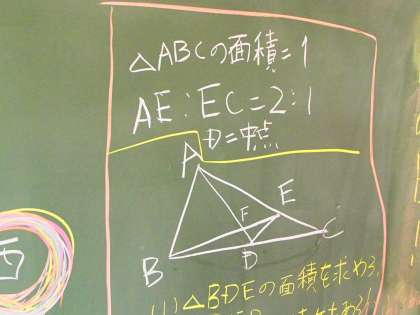 △ABCの面積=1
AE:EC=2:1
D=中点
A
F
E
B
D
C
西
(1)△BDEの面積を求めろ